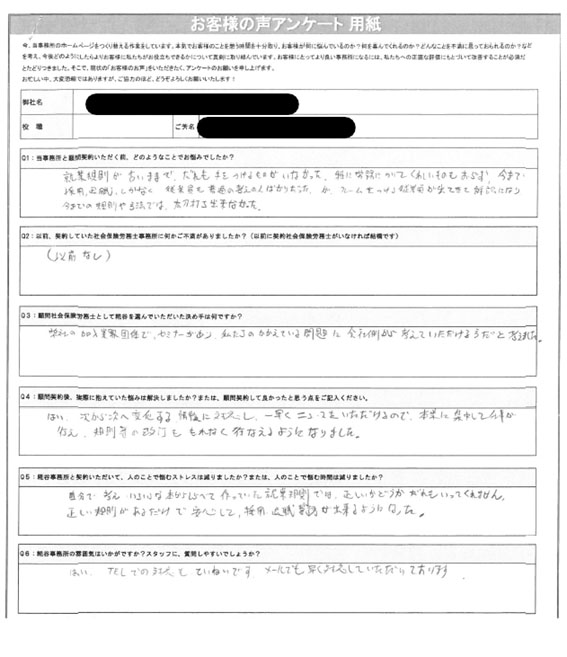 お客様の声アンケート 用紙
今、当事務所のホームページをつくり替える作業をしています。本気でお客様のことを想う時間を十分取り、お客様が何に悩んでいるのか?何を喜んでくれるのか?どんなことを不満に思っておられるのか?など
を考え、今後どのようにしたらよりお客様に私たちがお役立ちできるかについて真剣に取り組んでいます。お客様にとってより良い事務所になるには、私たちへの正直な評価にもとづいて改善することが必須だ
とたどりつきました。そこで、現状の「お客様のお声」をいただきたく、アンケートのお願いを申し上げます。
お忙しい中、大変恐縮ではありますが、ご協力のほど、どうぞよろしくお願いいたします!
御社名
役 職 ご芳名
Q1:当事務所と顧問契約いただく前、どのようなことでお悩みでしたか?
就業規則が古いままで、だれも手をつけるものがいなかった。特に労務について くわしいものもおらず、今まで
採用、退職、しかなく 従業員も普通の考えの人ばかりだった。が、クレームをつける従業員が出てきて解決になり
今までの規則や方法では、太刀打ち出来なかった。
Q2:以前、契約していた社会保険労務士事務所に何かご不満がありましたか?(以前に契約社会保険労務士がいなければ結構です)
(以前なし)
Q3:顧問社会保険労務士として糀谷を選んでいただいた決め手は何ですか?
弊社の加入業界団体で、セミナーがあり、私たちのかかえている問題に会社側から考えていただけそうだと考えました。
Q4:顧問契約後、実際に抱えていた悩みは解決しましたか?または、顧問契約して良かったと思う点をご記入ください。
はい、次から次へ変化する情報に対応し、一早く ていただけるので、本業に集中して仕事が
行え、規則等の改訂ももれなく行なえるようになりました。
Q5:糀谷事務所と契約いただいて、人のことで悩むストレスは減りましたか?または、人のことで悩む時間は減りましたか?
自分で考え いろいろ調べて作っていた就業規則では、正しいかどうかだれもいってくれません。
正しい規則があるだけで安心して、採用、退職業務が出来るようになった。
Q6:糀谷事務所の雰囲気はいかがですか?スタッフに、質問しやすいでしょうか?
はい、TELでの対応もていねいです。メールでも早く対応していただいております。